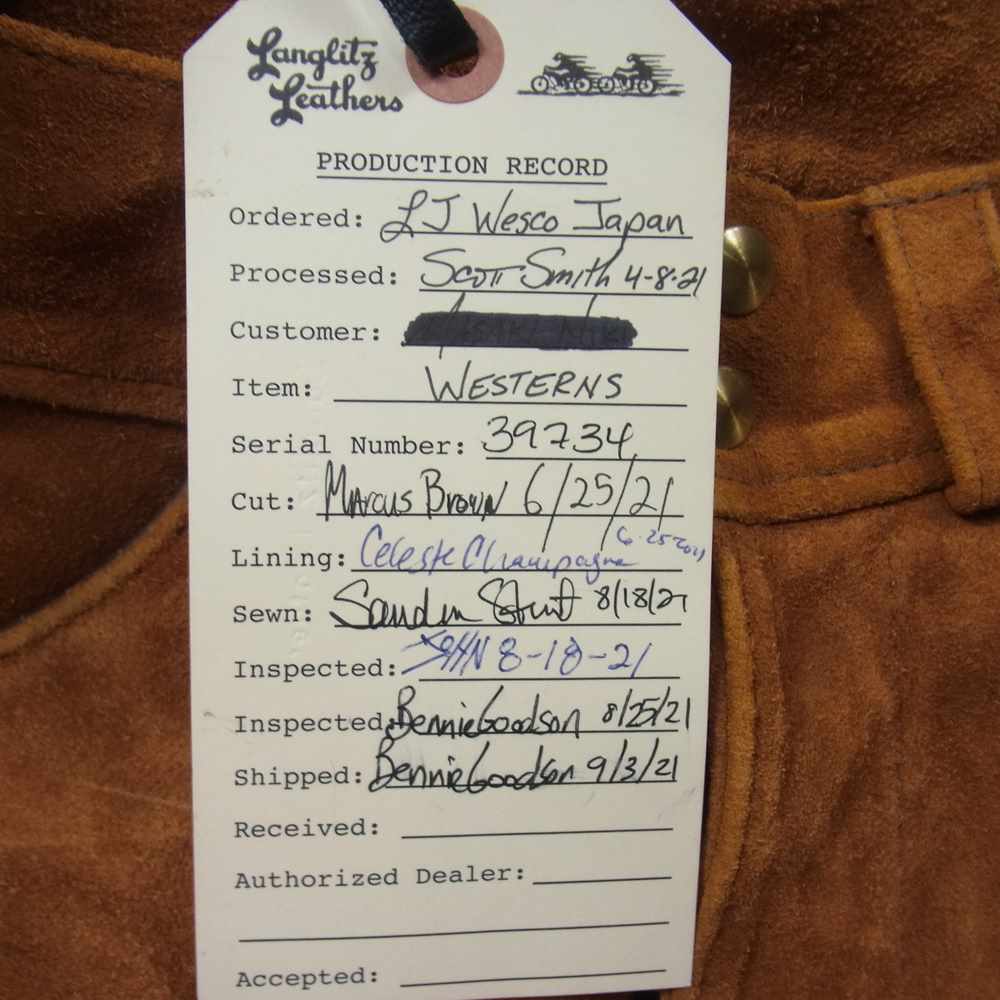 Langlitz
Leathers
PRODUCTION RECORD
Ordered: LJ Wesco Japan
Processed: Scott Smith 4-8-21
Customer:
Item: WESTERNS
Serial Number: 39734
Cut: Marcus Brown 6/25/21
Lining: Celeste Champagne 6-25-2021
Sewn: 8/18/21
Inspected: 8-18-21
Inspected: Bennie Goodson 8/25/21
Shipped: Bennie Goodson 9/3/21
Received:
Authorized Dealer:
Accepted: